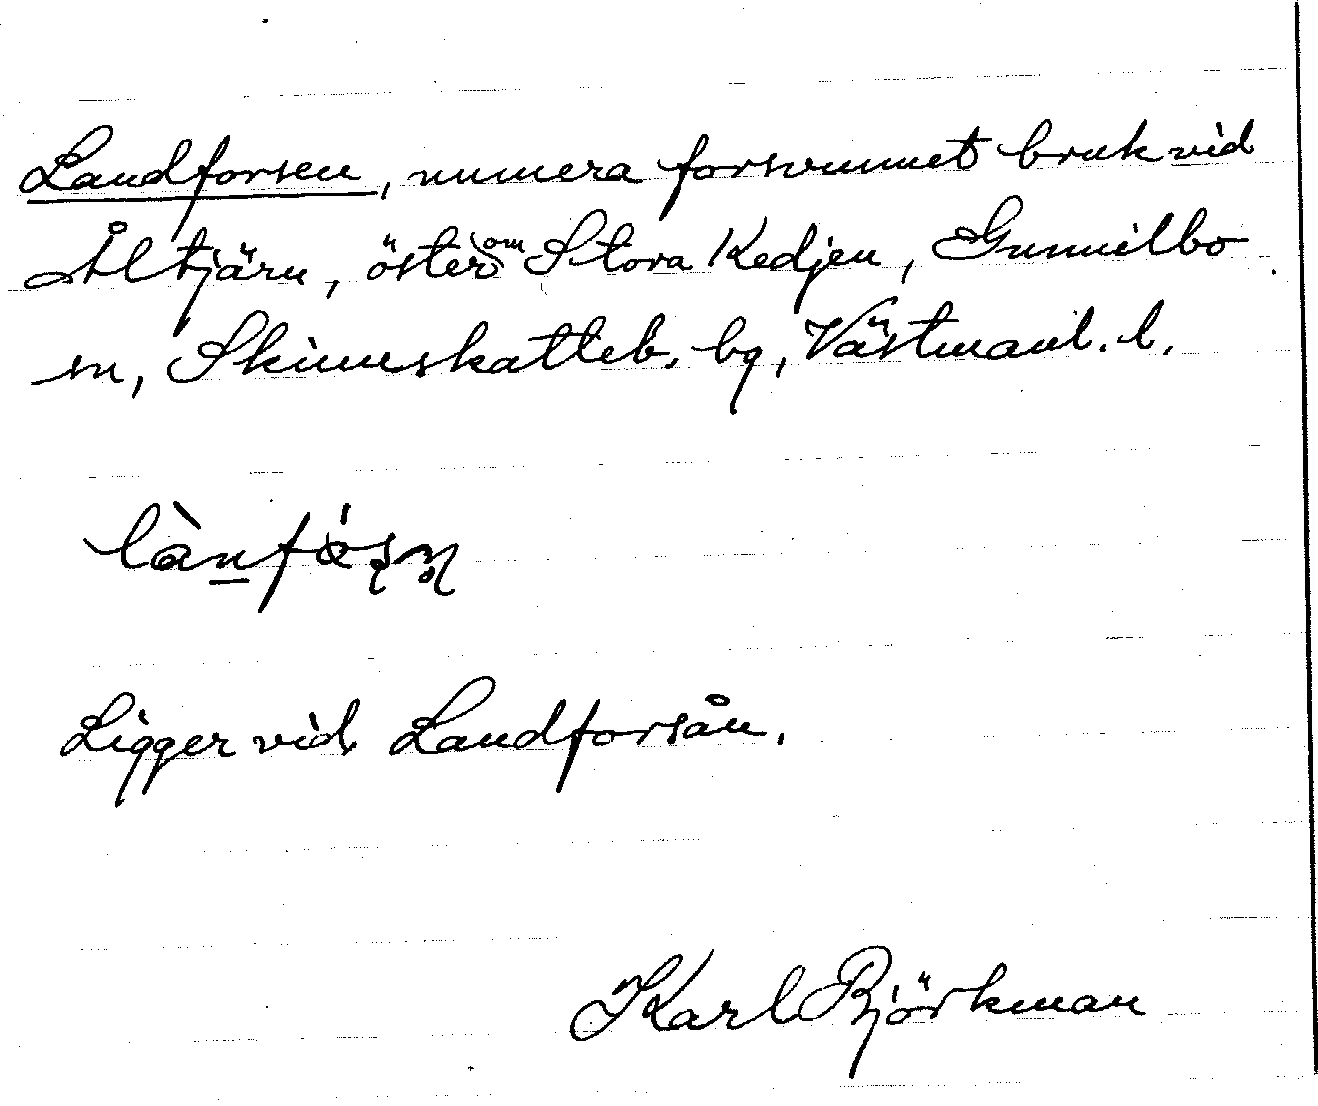 Landforsen, numera forsvunnet bruk vid
Åltjärn, öster om Stora Kedjen, Gunnilbo
sn, Skinnskatteb. bg, Västmanl. l.
lànfá̀sn̥
Ligger vid Landforsån.
Karl Björkman